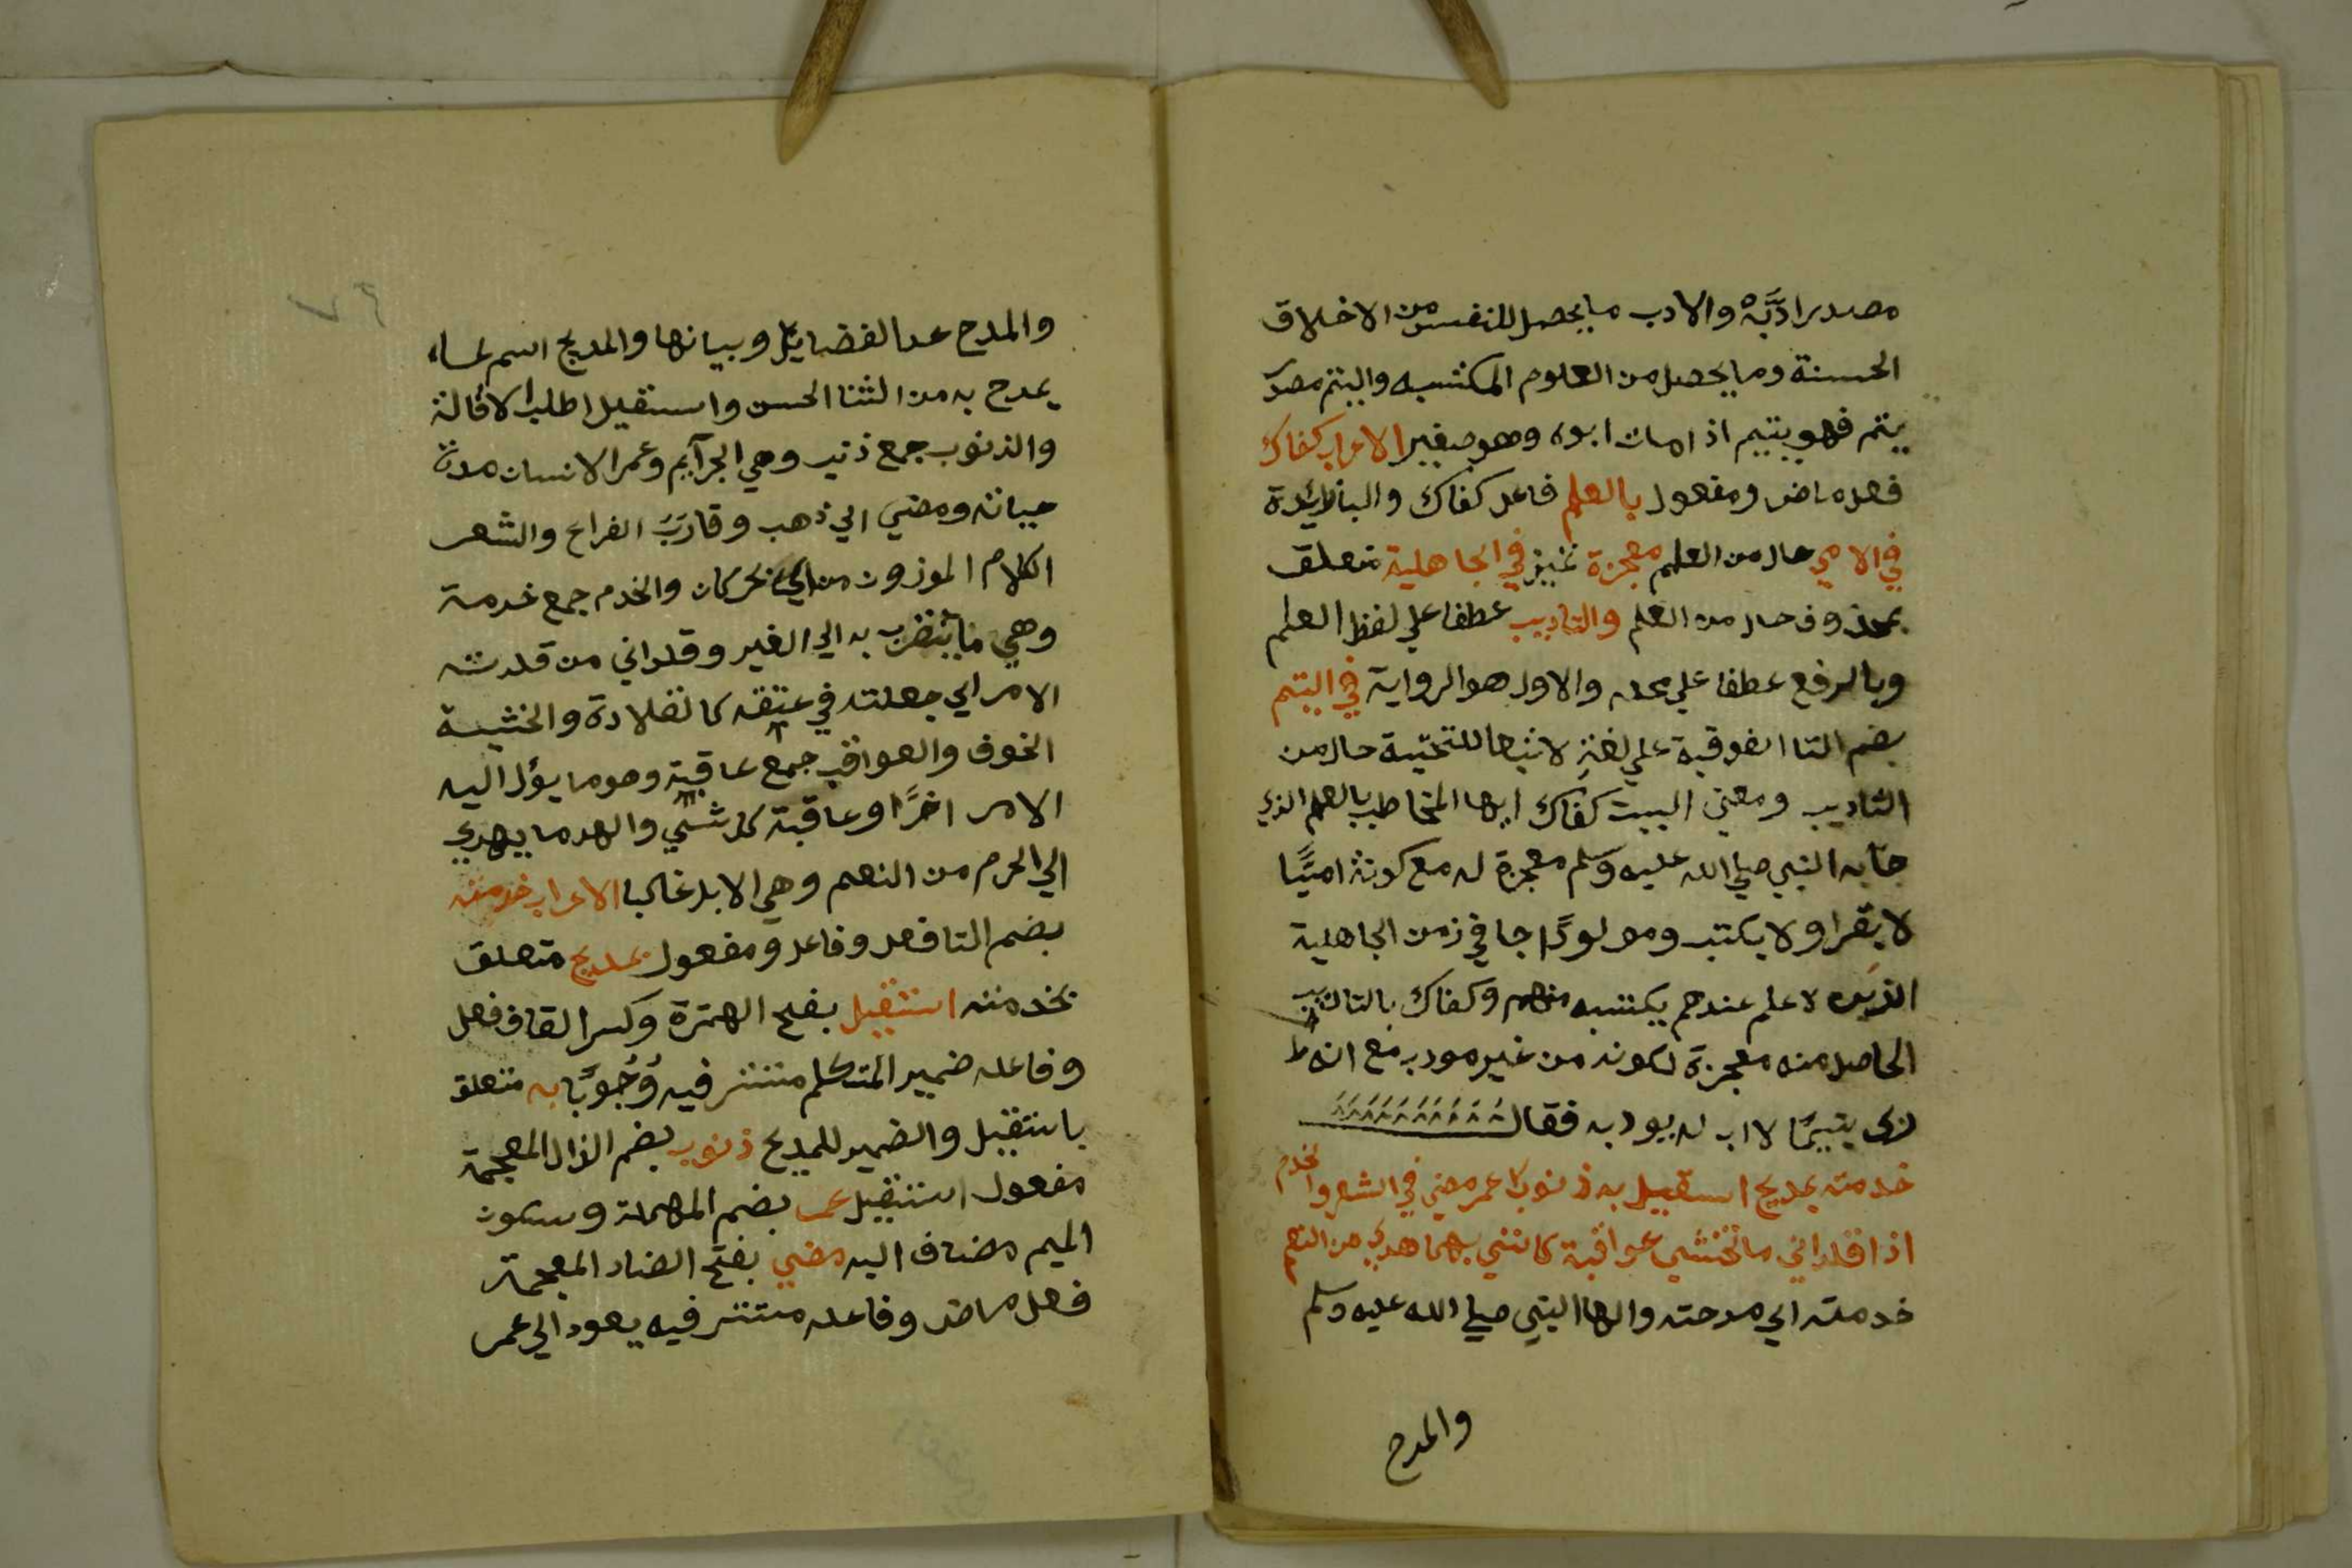 مصدر ادَّبَهُ والادب ما يحصل للنفس من الاخلاق
الحسنة وما يحصل من العلوم المكتسبه واليتم مصدر
يتم فهو يتيم اذا مات ابوه وهو صغير الاعراب كفاك
فعل ماض ومفعول بالعلم فاعل كفاك والبا زائدة
في الامي حال من العلم معجزة تمييز في الجاهلية متعلق
بمحذوف حال من العلم والتاديب عطفا علي لفظ العلم
وبالرفع عطفا علي محله والاول هو الرواية في اليتم
بضم التا الفوقية علي لغة لاتباعها للتحتية حال من
التاديب ومعني البيت كفاك ايها المخاطب بالعلم الذي
جا به النبي صلي الله عليه وسلم معجزة له مع كونه اميًّا
لا يقرا ولا يكتب ومولودًا جا في زمن الجاهلية
الذين لا علم عندهم يكتسبه منهم وكفاك بالتاديب
الحاصل منه معجزة لكونه من غير مودب مع انه
ربي يتيمًا لا اب له يودبه فقال
خدمته بمديح استقيل به ذنوب عمر مضي في الشعر والخدم
اذ قلداني ما تخشي عواقبه كانني بهما هدي من النعم
خدمته اي مدحته والها للنبي صلي الله عليه وسلم
والمدح
والمدح عد الفضايل وبيانها والمديح اسم لما
يمدح به من الثنا الحسن واستقيل اطلب الاقالة
والذنوب جمع ذنب وهي الجرآيم وعمر الانسان مدة
حياته ومضي اي ذهب وقارَبَ الفراغ والشعر
الكلام الموزون من اي بحر كان والخدم جمع خدمة
وهي ما يتقرب به الي الغير وقلداني من قلدته
الامر اي جعلته في عنقه كالقلادة والخشية
الخوف والعواقب جمع عاقبة وهو ما يؤل اليه
الامر اخرًا وعاقبة كل شي والهد ما يهدي
الي الحرم من النعم وهي الابل غالبا الاعراب خدمته
بضم التا فعل وفاعل ومفعول بمديح متعلق
بخدمته استقيل بفتح الهمزة وكسر القاف فعل
وفاعله ضمير المتكلم مستتر فيه وُجُوبًا به متعلق
باستقيل والضمير للمديح ذنوب بضم الذال المعجمة
مفعول استقيل عمر بضم المهملة وسكون
الميم مضاف اليه مضي بفتح الضاد المعجمة
فعل ماض وفاعله مستتر فيه يعود الي عمر